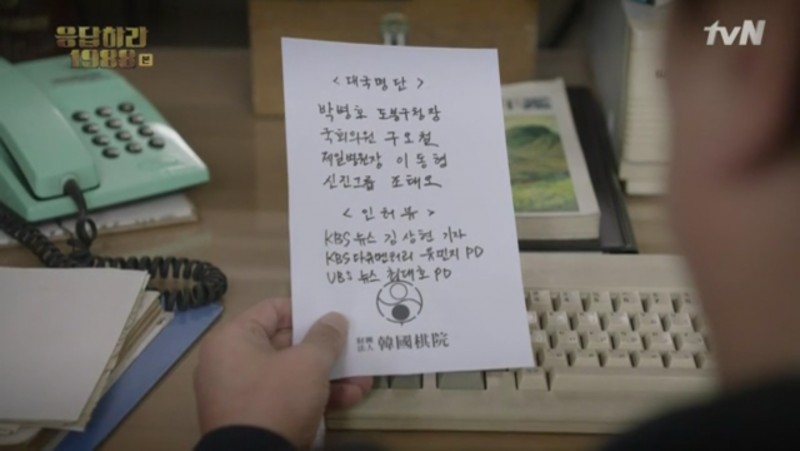 응답하라
1988
tvN
<대국명단>
박병호 도봉구청장
국회의원 구오철
제일병원장 이동협
신진그룹 조태오
<인허뷰>
KBS 뉴스 김상현 기자
KBS 다큐멘터리 유민지 PD
UBS 뉴스 최대호 PD
財團
法人 韓國棋院